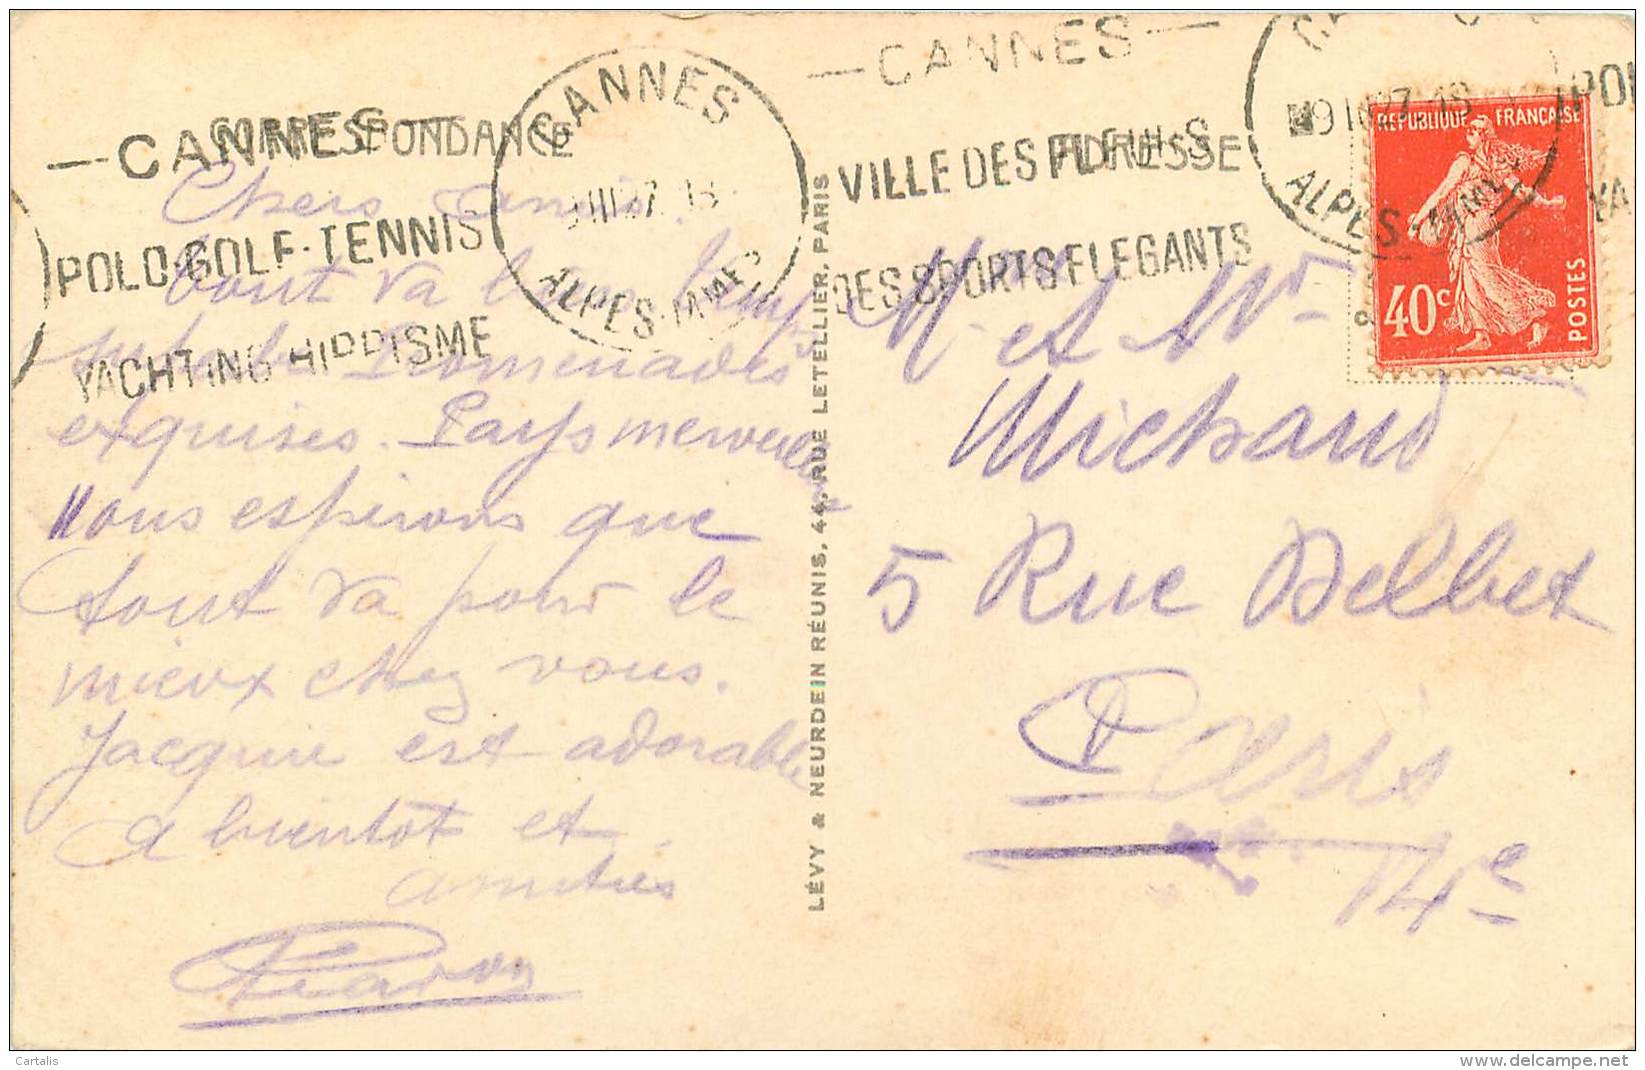 — CANNES —
CORRESPONDANCE
POLO·GOLF·TENNIS
YACHTING HIPPISME
CANNES
ALPES-MMES
— CANNES —
VILLE DES FLEURS
ADRESSE
DES SPORTS ELEGANTS
ALPES-MMES
POL
YA
REPUBLIQUE FRANÇAISE
40c
POSTES
Chers amis.
tout va bien temps
Promenades
exquises. Pays merveilleux
Nous espérons que
tout va pour le
mieux chez vous.
Jacquie est adorable
a bientot et
amitiés
LÉVY & NEURDEIN RÉUNIS, 44, RUE LETELLIER, PARIS
M et Mr
Michaud
5 Rue Delbet
Paris
14e
Cartalis
www.delcampe.net